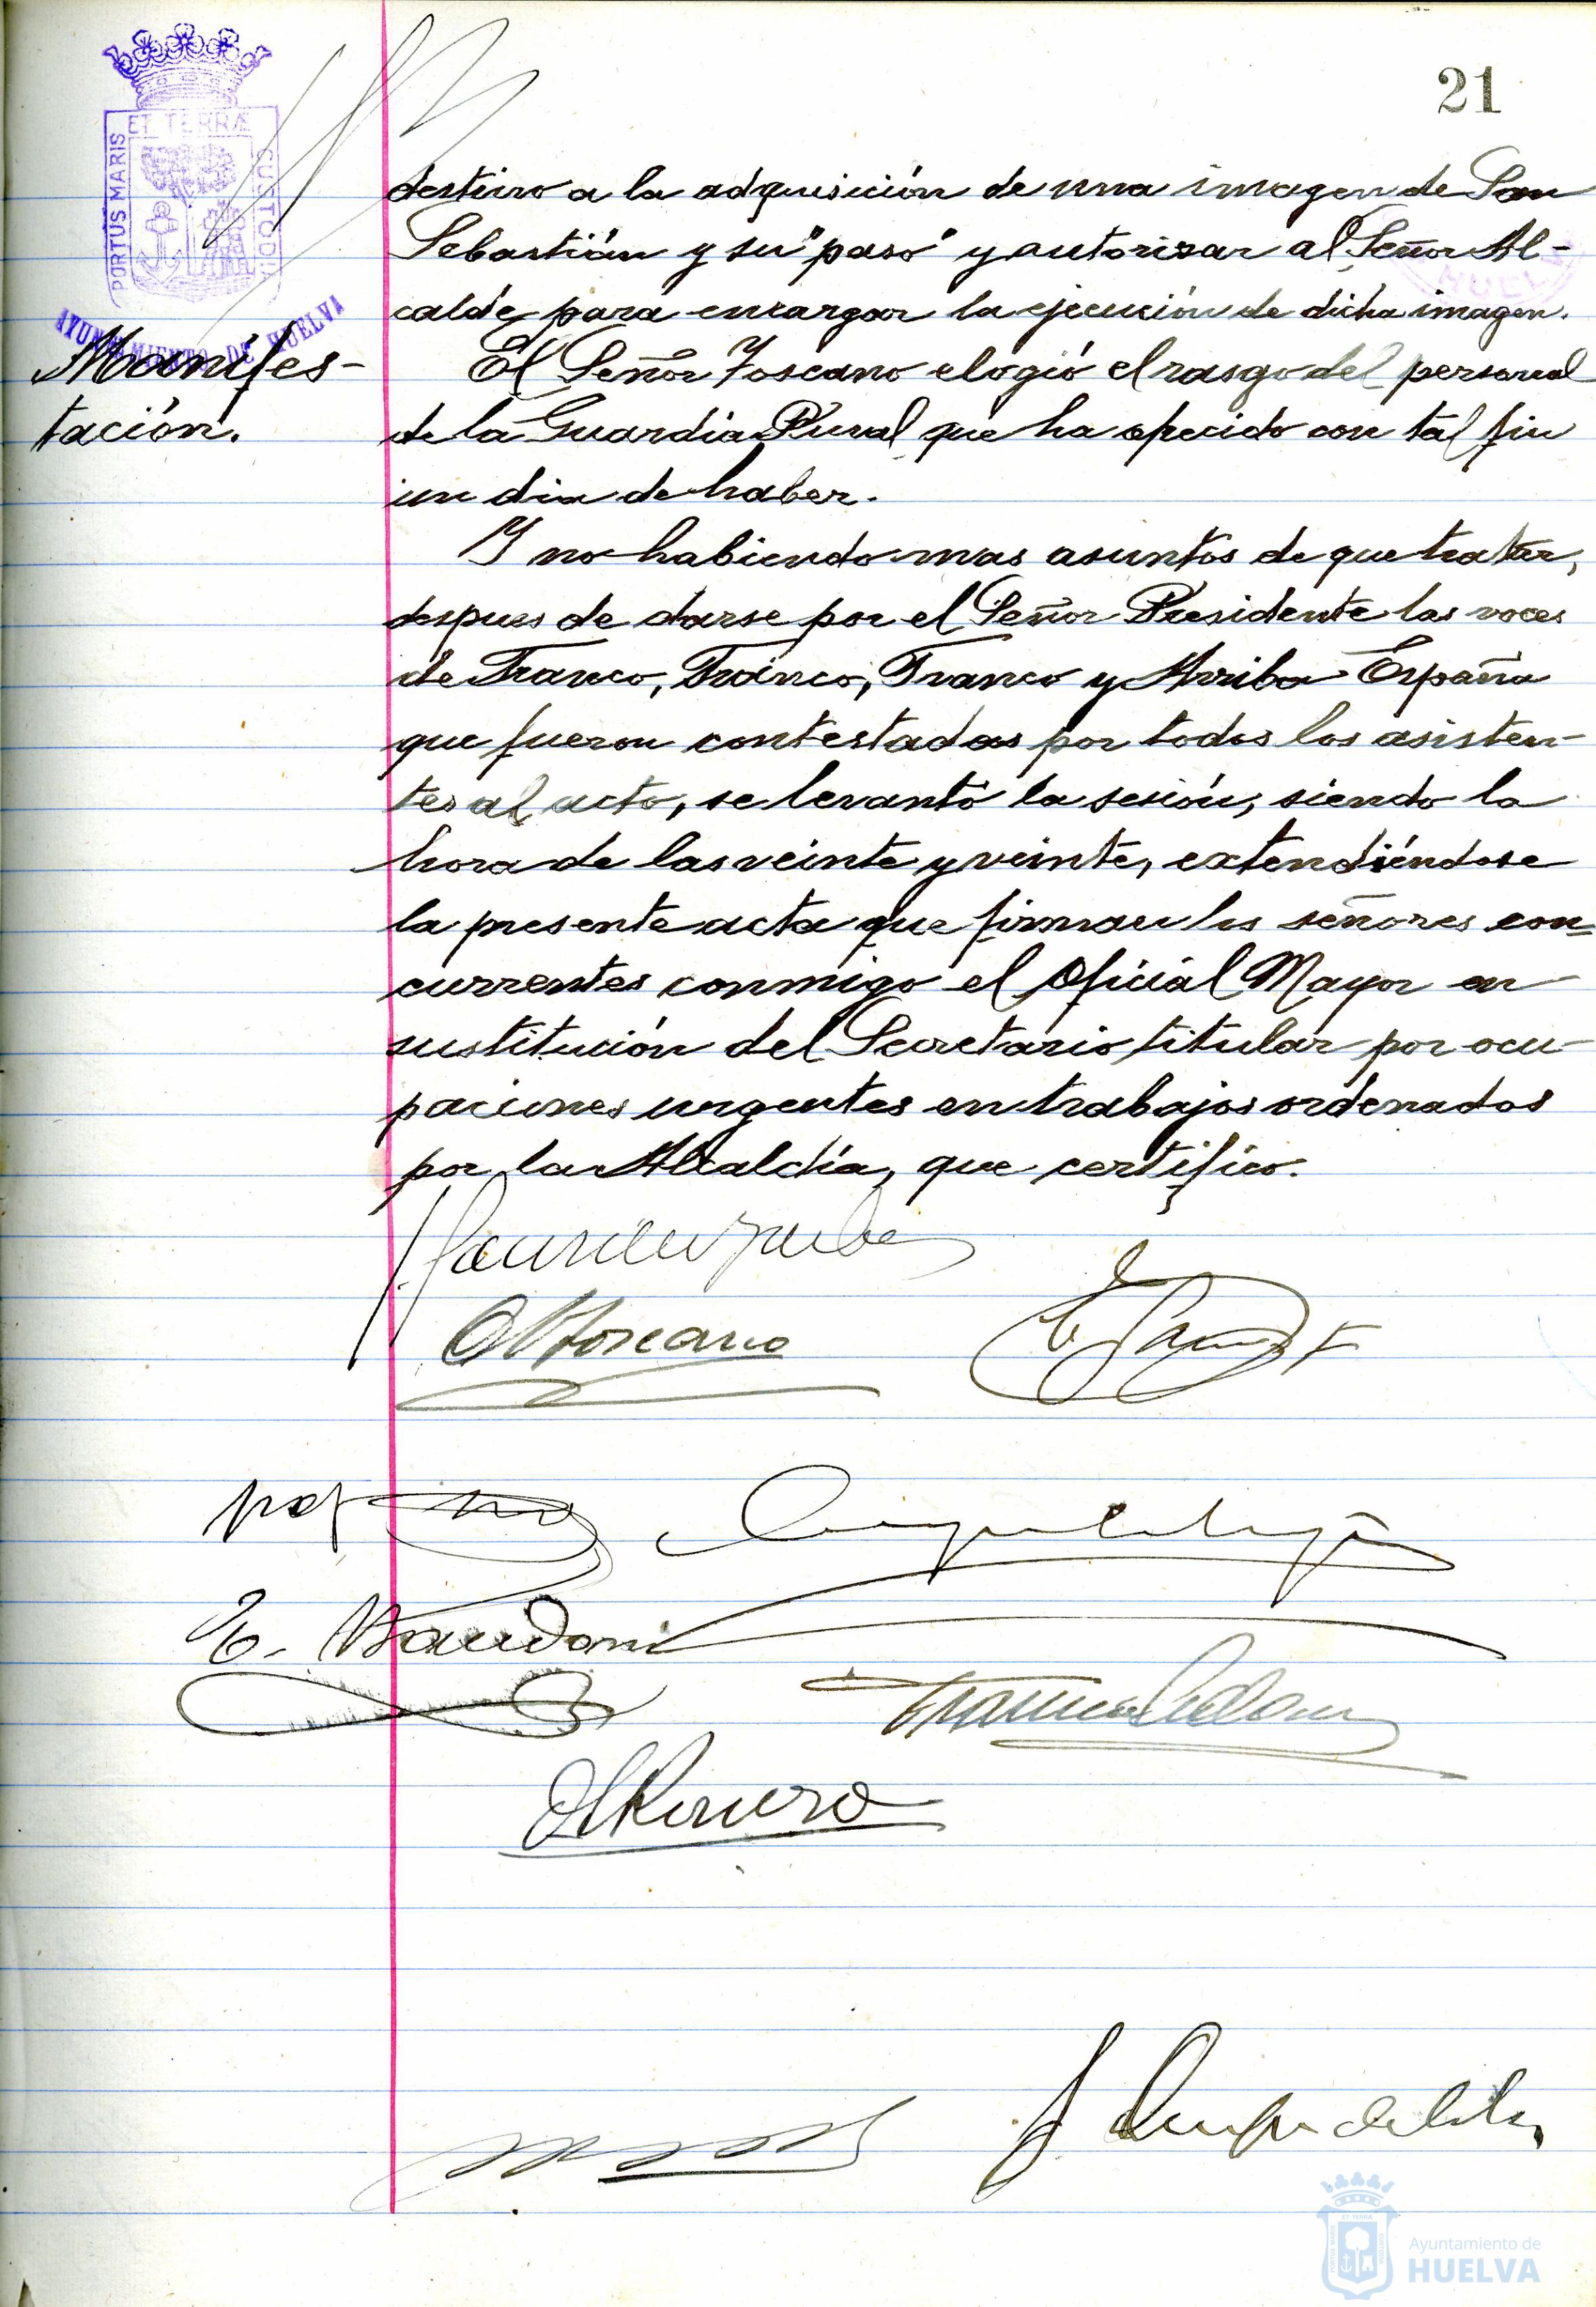 21
PORTUS MARIS
ET TERRÆ
CUSTODIA
AYUNTAMIENTO DE HUELVA
HUEL
destino a la adquisición de una imagen de San
Sebastián y su "paso" y autorizar al Señor Al-
calde para encargar la ejecución de dicha imagen.
Manifes-
tación.
El Señor Toscano elogió el rasgo del personal
de la Guardia Rural que ha ofrecido con tal fin
un dia de haber.
Y no habiendo mas asuntos de que tratar,
despues de darse por el Señor Presidente las voces
de Franco, Franco, Franco y Arriba España
que fueron contestadas por todos los asisten-
tes al acto, se levantó la sesión, siendo la
hora de las veinte y veinte, extendiéndose
la presente acta que firman los señores con=
currentes conmigo el Oficial Mayor en
sustitución del Secretario titular por ocu-
paciones urgentes en trabajos ordenados
por la Alcaldía, que certifico.
Toscano
Romero
Ayuntamiento de
HUELVA